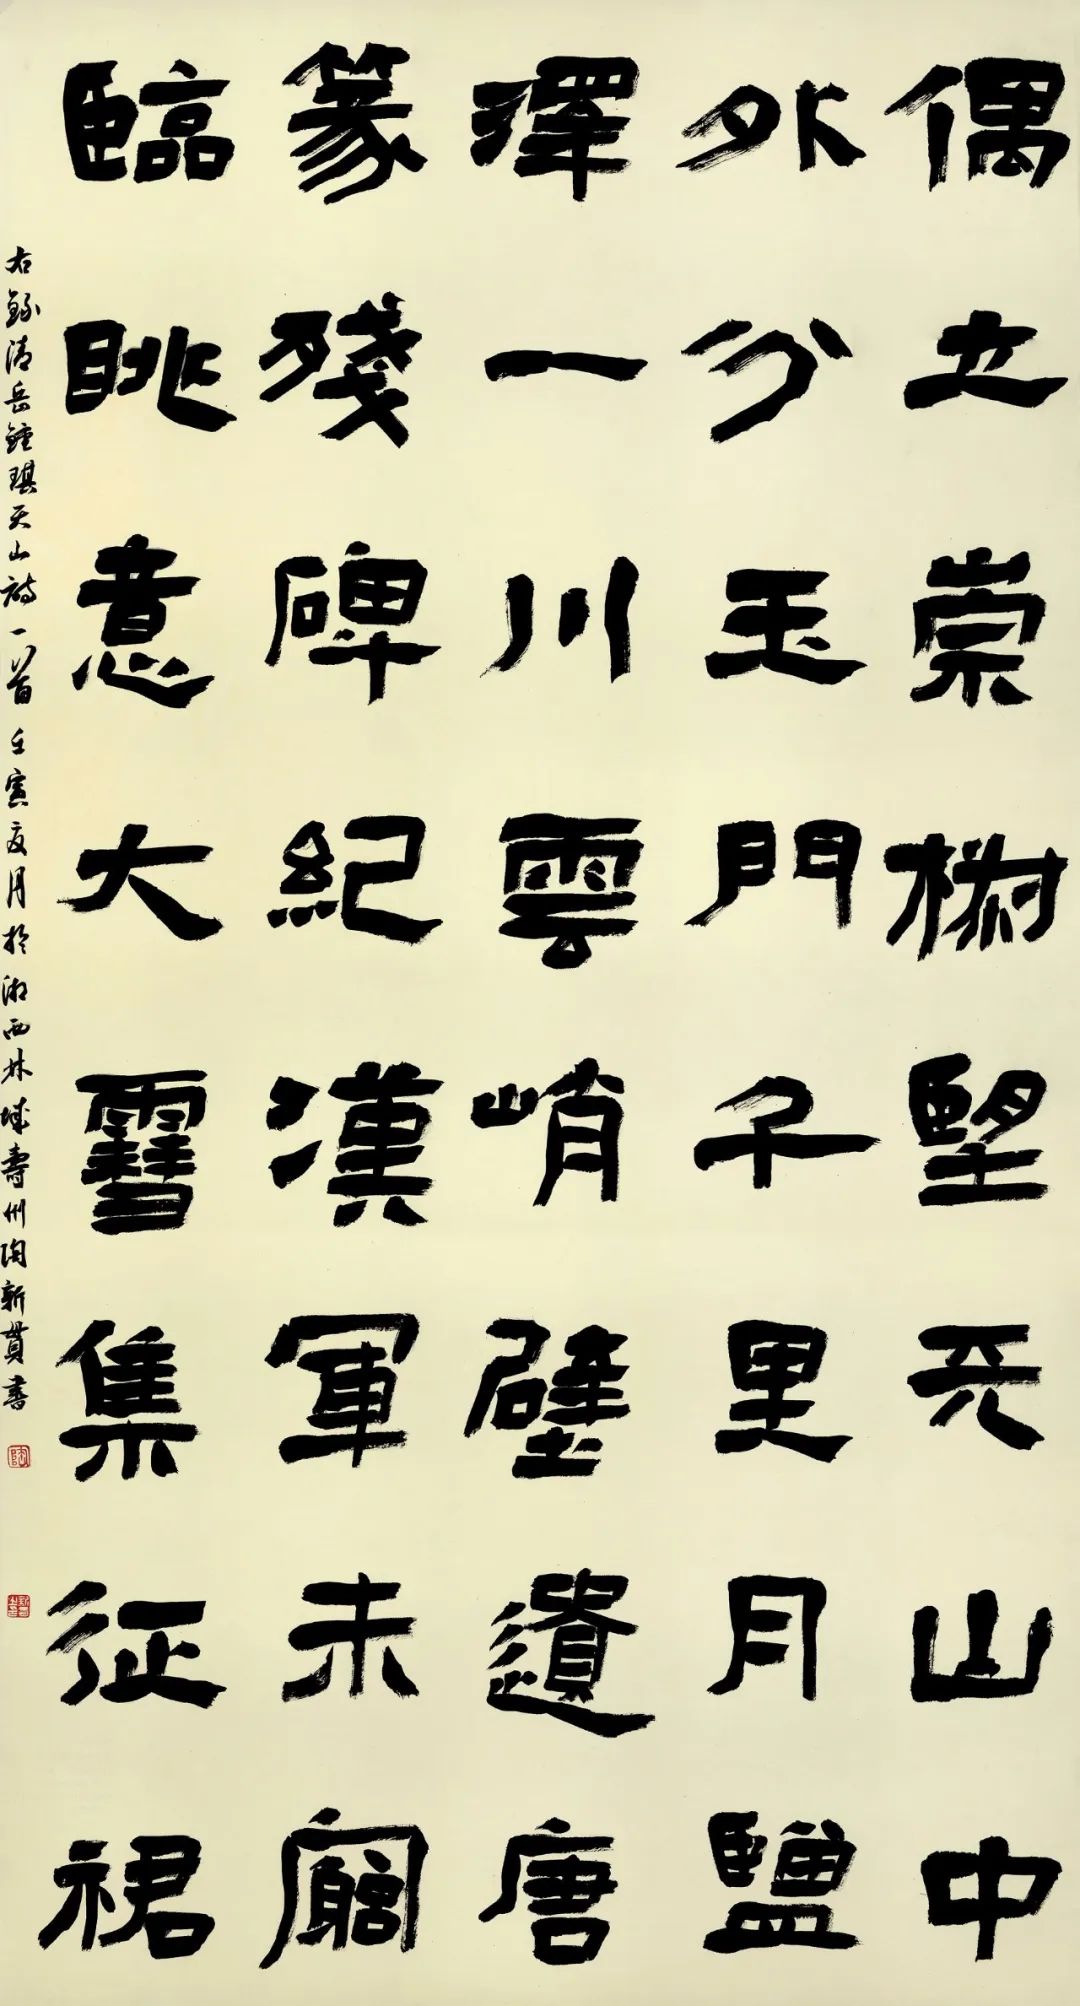 偶立崇椒望天山中
外分玉門千里月鹽
澤一川雲峭壁遺唐
篆殘碑紀漢軍未窮
臨眺意大雪集征裙
右錄清岳鍾琪天山詩一首 壬寅夏月於湘西林城壽州陶新貫書
陶